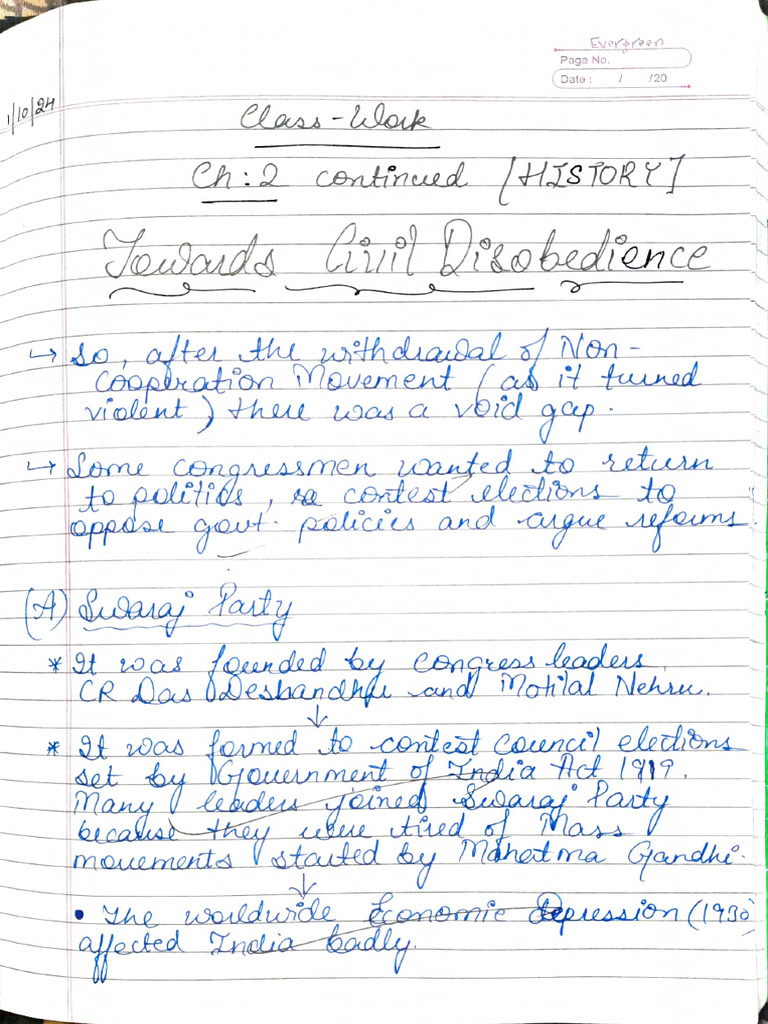 Evergreen
Page No.
Date : / /20
1/10/24
Class-Work
Ch:2 continued [HISTORY]
Towards Civil Disobedience
→ So, after the withdrawal of Non-
Cooperation Movement (as it turned
violent) there was a void gap.
→ Some congressmen wanted to return
to politics, contest elections to
oppose govt. policies and argue reforms
(A) Swaraj Party
* It was founded by Congress leaders
CR Das Deshandhu and Motilal Nehru.
↓
* It was formed to contest council elections
set by Government of India Act 1919.
Many leaders joined Swaraj Party
because they were tired of Mass
movements started by Mahatma Gandhi.
↓
• The worldwide Economic Depression (1930
affected India badly.